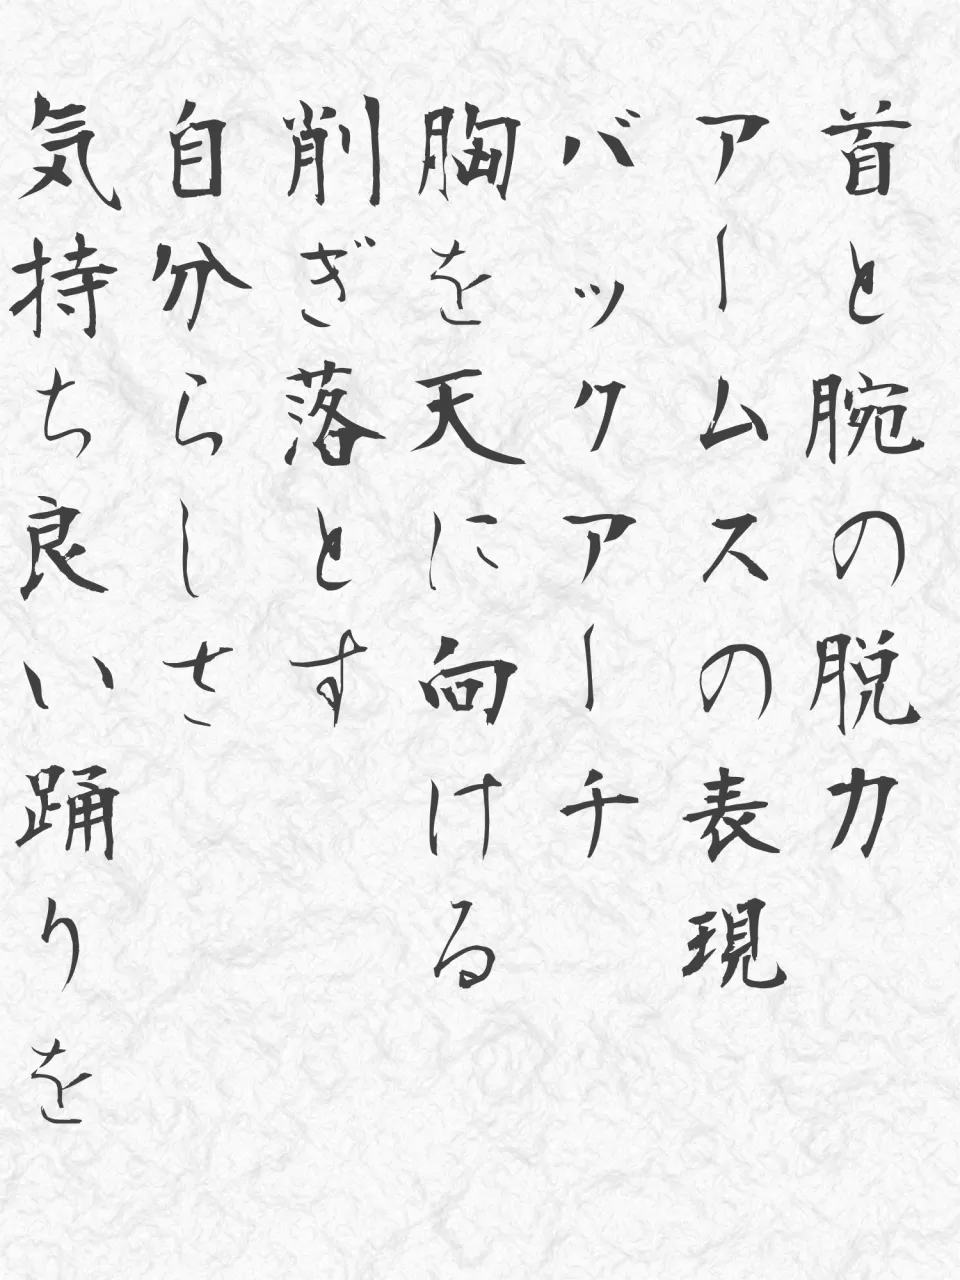 首と腕の脱力
アームスの表現
バックアーチ
胸を天に向ける
削ぎ落とす
自分らしさ
気持ち良い踊りを